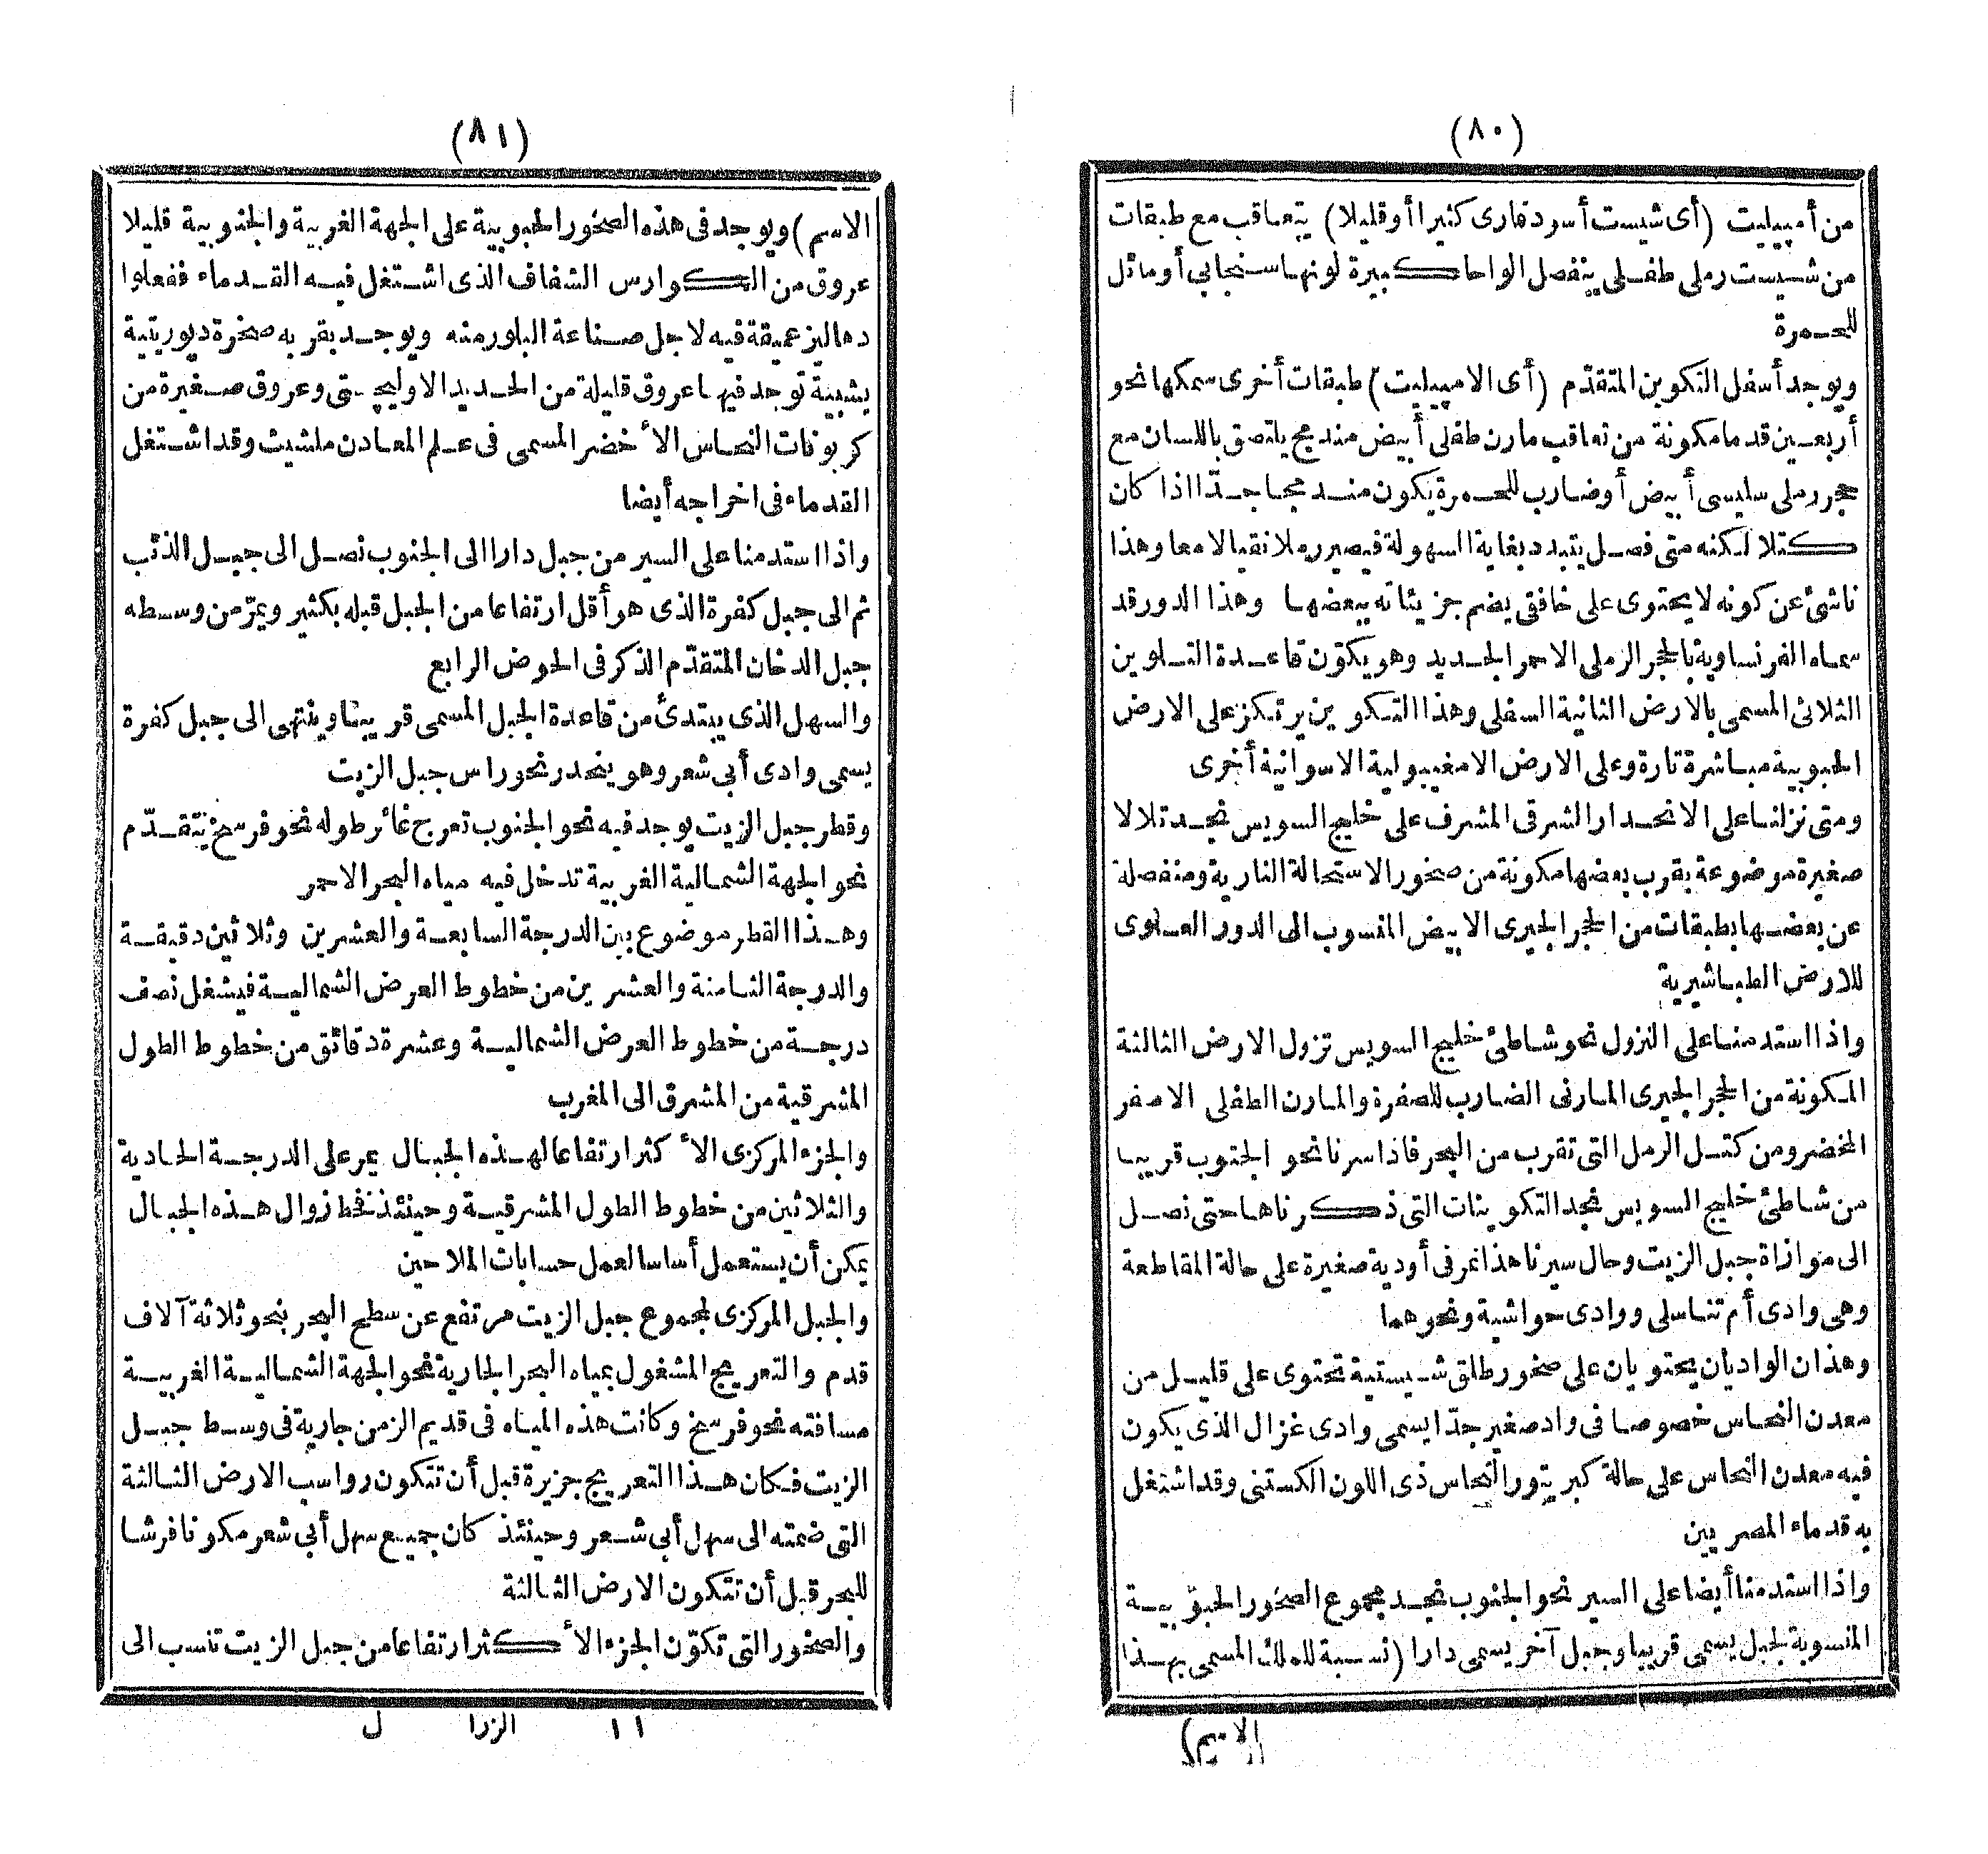 (٨٠)
من أمپيليت (أى شيست أسود فارى كثيرا أو قليلا) يتعاقب مع طبقات
من شيست رملى طفلى ينفصل الواحا كبيرة لونها سنجابي أو مائل
للحمرة
ويوجد أسفل التكوين المتقدّم (أى الامپيليت) طبقات أخرى سمكها نحو
أربعين قدما مكونة من تعاقب مارن طفلى أبيض مندمج يلتصق باللسان مع
حجر رملى سليسى أبيض أو ضارب للحمرة يكون مندمجا جدّا اذا كان
كتلا لكنه متى فصل يتبدد بغاية السهولة فيصير رملا نقيا لامعا وهذا
ناشئ عن كونه لا يحتوى على خافقى يضم جزيئاته ببعضها وهذا الدور قد
سماه الفرنساوية بالحجر الرملى الاحمر الجديد وهو يكوّن قاعدة التلوين
الثلاثى المسمى بالارض الثانية السفلى وهذا التكوين يرتكز على الارض
الحبوبية مباشرة تارة وعلى الارض الامفيبولية الاسوانية أخرى
ومتى نزلنا على الانحدار الشرقى المشرف على خليج السويس نجد تلالا
صغيرة موضوعة بقرب بعضها مكونة من صخور الاستحالة النارية ومنفصلة
عن بعضها بطبقات من الحجر الجيرى الابيض المنسوب الى الدور العلوى
للارض الطباشيرية
واذا استدمنا على النزول نحو شاطئ خليج السويس تزول الارض الثالثة
المكونة من الحجر الجيرى المارنى الضارب للصفرة والمارن الطفلى الاصفر
المخضر ومن كتل الرمل التى تقرب من البحر فاذا سرنا نحو الجنوب قريبا
من شاطئ خليج السويس نجد التكوينات التى ذكرناها حتى نصل
الى موازاة جبل الزيت وحال سيرنا هذا نمر فى أودية صغيرة على حالة المقاطعة
وهى وادى أم تناسلى ووادى حواشية ونحوهما
وهذان الواديان يحتويان على صخور طلق شيستية تحتوى على قليل من
معدن النحاس خصوصا فى واد صغير جدّا يسمى وادى غزال الذى يكون
فيه معدن النحاس على حالة كبريتور النحاس ذى اللون الكستنى وقد اشتغل
به قدماء المصريين
واذا استدمنا أيضا على السير نحو الجنوب نجد مجموع الصخور الحبوبية
المنسوبة لجبل يسمى قريبا وجبل آخر يسمى دارا (نسبة للملك المسمى بهذا
الاسم)
(٨١)
الاسم) ويوجد فى هذه الصخور الحبوبية على الجهة الغربية والجنوبية قليلا
عروق من الكوارس الشفاف الذى اشتغل فيه القدماء ففعلوا
دهاليز عميقة فيه لاجل صناعة البلور منه ويوجد بقربه صخرة ديوريتية
يشبية توجد فيها عروق قليلة من الحديد الاوليچتى وعروق صغيرة من
كربونات النحاس الأخضر المسمى فى علم المعادن ملشيث وقد اشتغل
القدماء فى اخراجه أيضا
واذا استدمنا على السير من جبل دارا الى الجنوب نصل الى جبل الذئب
ثم الى جبل كفرة الذى هو أقل ارتفاعا من الجبل قبله بكثير ويمرّ من وسطه
جبل الدخان المتقدّم الذكر فى الحوض الرابع
والسهل الذى يبتدئ من قاعدة الجبل المسمى قريبا وينتهى الى جبل كفرة
يسمى وادى أبى شعر وهو ينحدر نحو راس جبل الزيت
وقطر جبل الزيت يوجد فيه نحو الجنوب تعرج غائر طوله نحو فرسخ يتقدّم
نحو الجهة الشمالية الغربية تدخل فيه مياه البحر الاحمر
وهذا القطر موضوع بين الدرجة السابعة والعشرين وثلاثين دقيقة
والدرجة الثامنة والعشرين من خطوط العرض الشمالية فيشغل نصف
درجة من خطوط العرض الشمالية وعشرة دقائق من خطوط الطول
المشرقية من المشرق الى المغرب
والجزء المركزى الأكثر ارتفاعا لهذه الجبال يمر على الدرجة الحادية
والثلاثين من خطوط الطول المشرقية وحينئذ نخط زوال هذه الجبال
يمكن أن يستعمل أساسا لعمل حسابات الملاحين
والجبل المركزى لمجموع جبل الزيت مرتفع عن سطح البحر بنحو ثلاثة آلاف
قدم والتعريج المشغول بمياه البحر الجارية نحو الجهة الشمالية الغربية
مسافته نحو فرسخ وكانت هذه المياه فى قديم الزمن جارية فى وسط جبل
الزيت فكان هذا التعريج جزيرة قبل أن تتكون رواسب الارض الثالثة
التى ضمته الى سهل أبى شعر وحينئذ كان جميع سهل أبى شعر مكونا فرشا
للبحر قبل أن تتكون الارض الثالثة
والصخور التى تكوّن الجزء الأكثر ارتفاعا من جبل الزيت تنسب الى
١١ الزرا ل